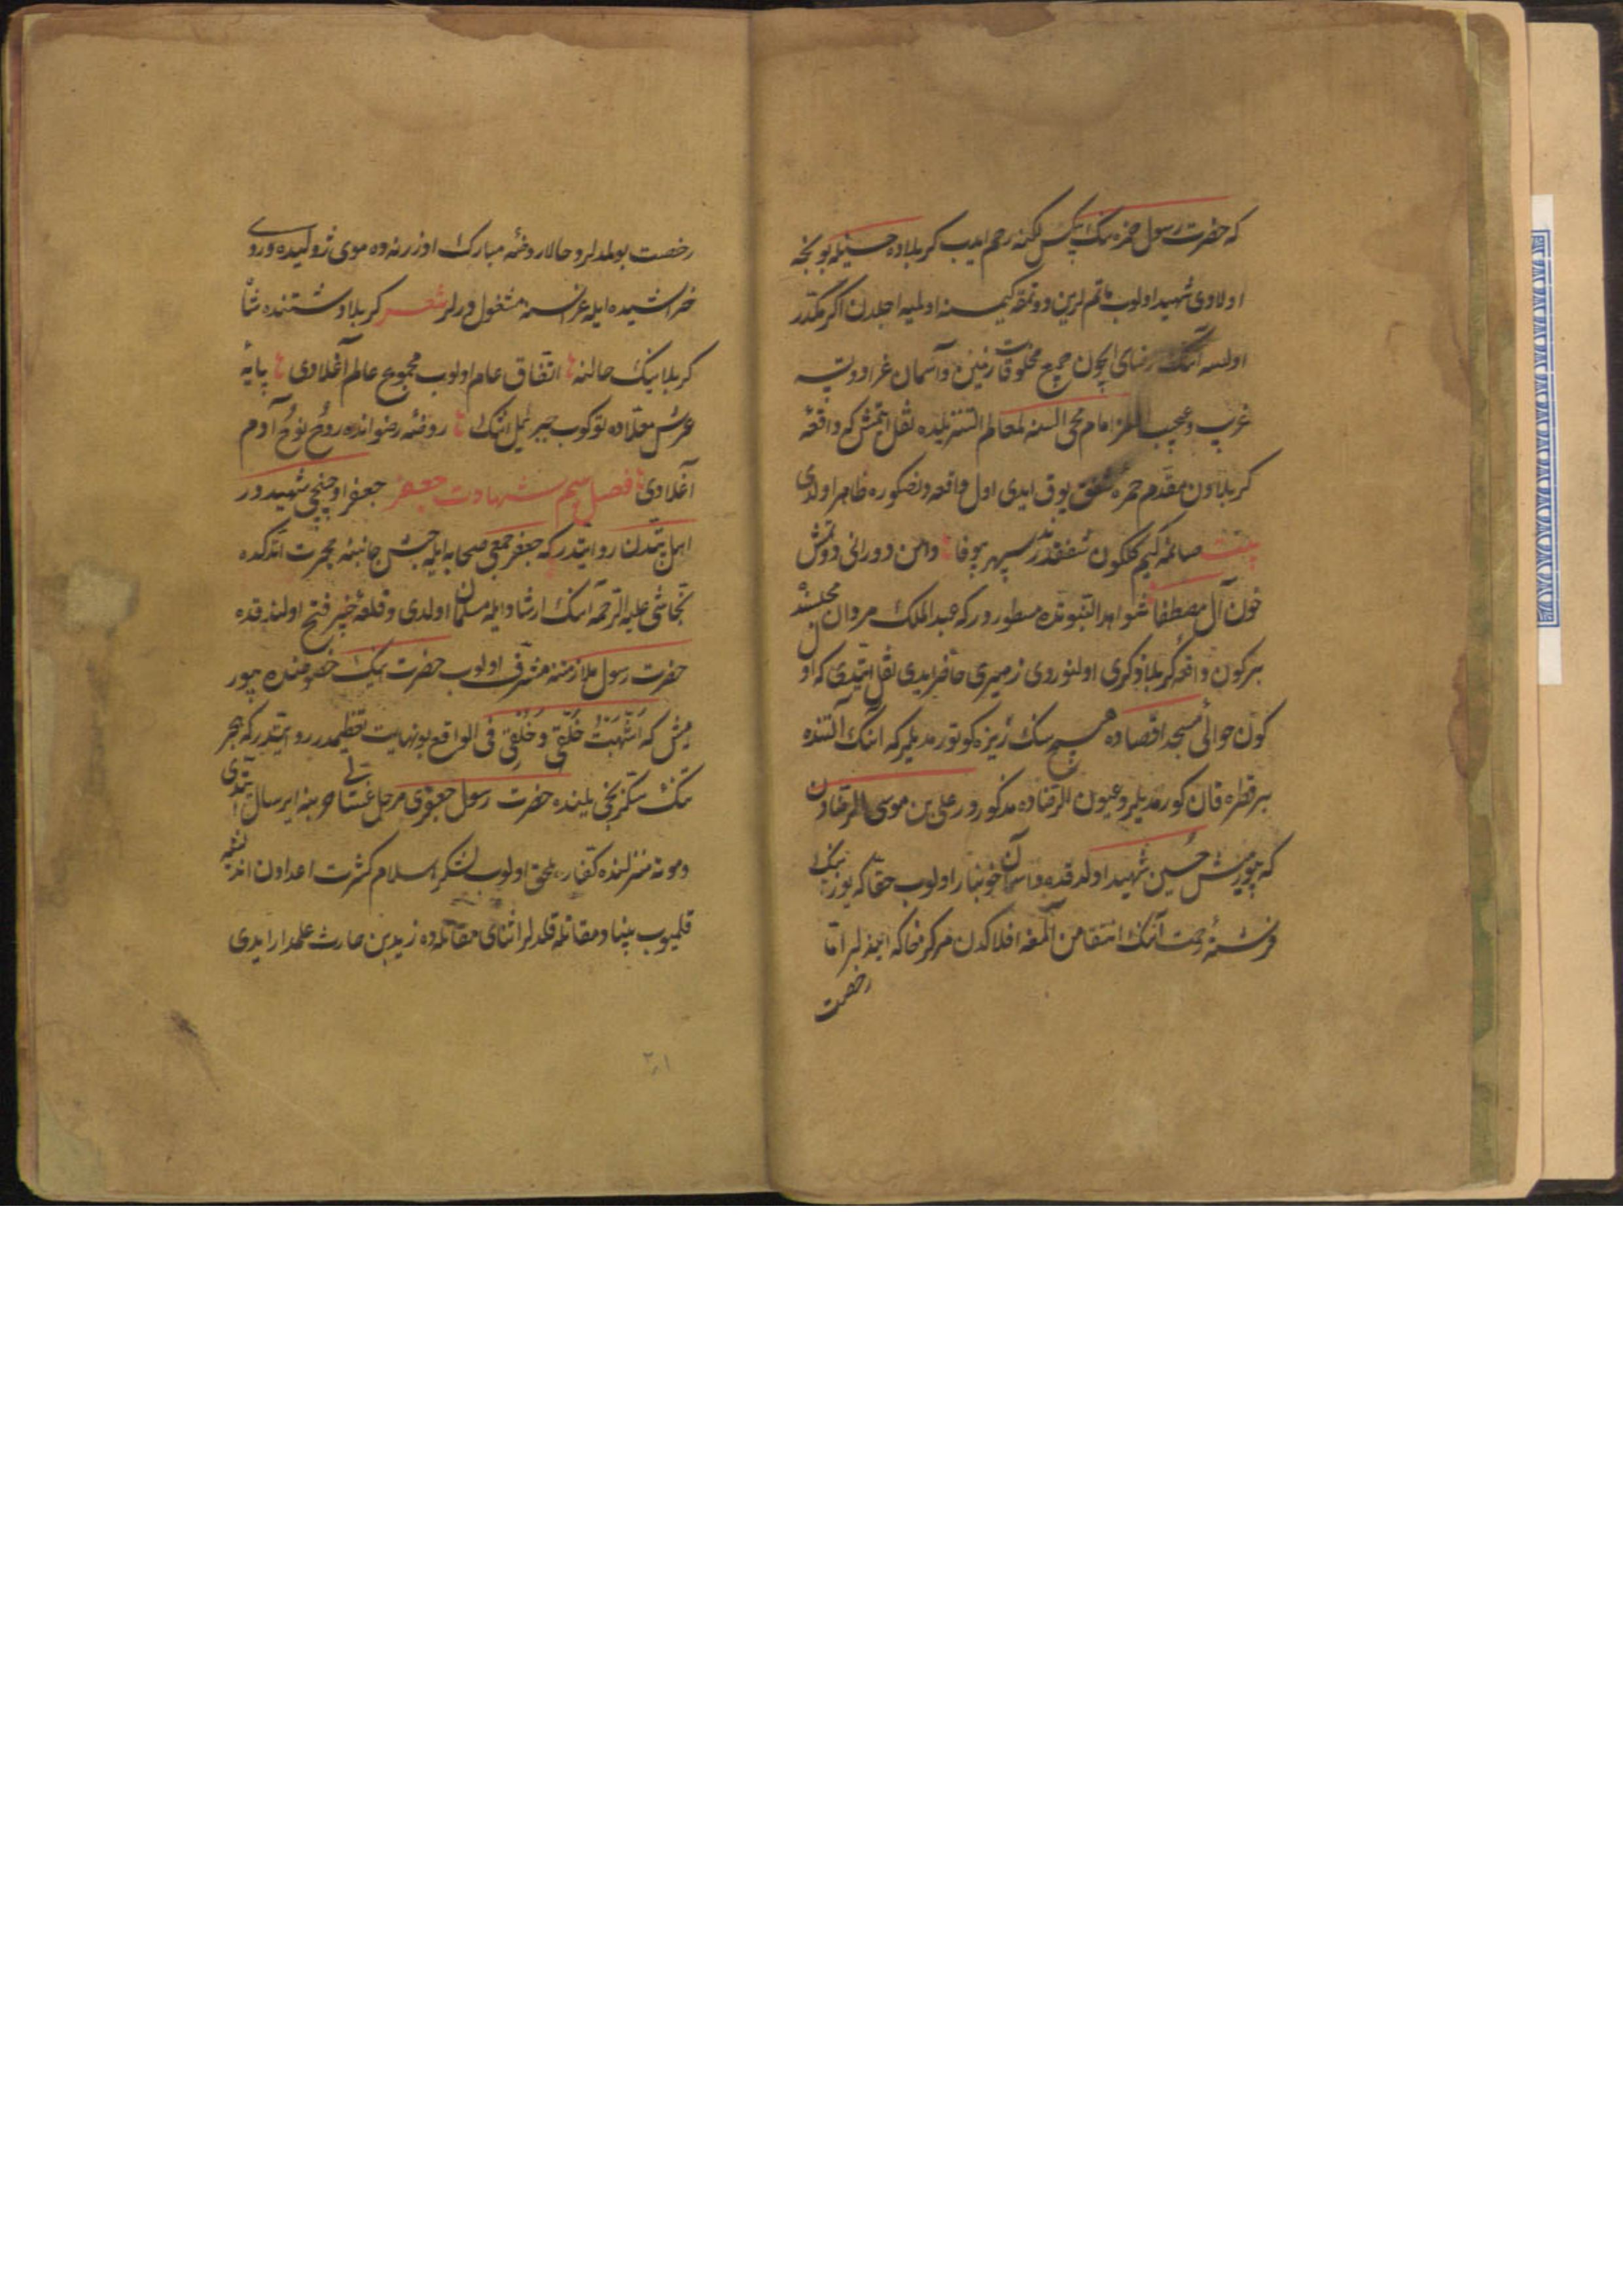 که حضرت رسول حمزه ننک بیکس لکینه رحم ایدب کربلاده حسینه بونجه
اولادی شهید اولوب ماتم لرین دوتمقه کیمسنه اولمیه اجلدن اکر مکدر
اولسه آننک رضای ایچون جمیع مخلوقات زمین و آسمان عزا دوتسه
غریب و عجیب اولمز امام محی السنه لمعالم التنزیلده نقل ایتمش که واقعهٔ
کربلادن مقدم حمرهٔ شفق یوق ایدی اول واقعهٔ مذکوره ظاهر اولدی
بیت صانمه کیم کلکون شفقدندر سپهر بیوفا دامن دورانی دوتمش
خون آل مصطفا شواهد النبوتده مسطوردر که عبدالملک مروان مجلسنده
بر کون واقعهٔ کربلا ذکری اولنوردی زهری حاضر ایدی نقل ایتدی که او
کون حوالئ مسجد اقصاده هیچ سنک ریزه کوتورمدیلر که آننک آلتنده
بر قطره قان کورمدیلر و عیون الرضاده مذکوردر علی بن موسی الرضادن
که چون حسین شهید اولدقده آسمان خونبار اولوب حقا که یوز بیک
فرشتهٔ رحمت آننک انتقامن آلمغه افلاکدن مرکز خاکه ایندیلر اما
رخصت
رخصت بولمدلر و حالا روضهٔ مبارک اوزرنده موی ژولیده و روی
خراشیده ایله عزاسنه مشغولدرلر شعر کربلا دشتنده شاه
کربلا نیک حالنه اتفاق عام اولوب مجموع عالم آغلادی پایهٔ
عرش معلاده توکوب جبرئیل اشک روضهٔ رضوانده روح نوح آدم
آغلادی فصل سیم شهادت جعفر جعفر اوچنجی شهیددور
اهل بیتدن روایتدر که جعفر جمعی صحابه ایله حبش جانبنه هجرت اتدکده
نجاشی علیه الرحمه اننک ارشاد ایله مسلمان اولدی و قلعهٔ خیبر فتح اولندقده
حضرت رسول ملازمتنه مشرف اولوب حضرت اننک خصوصنده بیور
میش که اشبهت خلقی و خلقی فی الواقع بو نهایت تعظیمدر روایتدر که هجر
تنک سکزنجی یلنده حضرت رسول جعفری مرحل غسانی حربنه ایرسال ایتدی
و موته منزلنده کفاره ملحق اولوب لشکر اسلام کثرت اعدادن اندیشه
قلمیوب بنیاد مقاتله قلدلر اثنای مقاتله ده زید بن حارث علمدار ایدی
۲۰۱